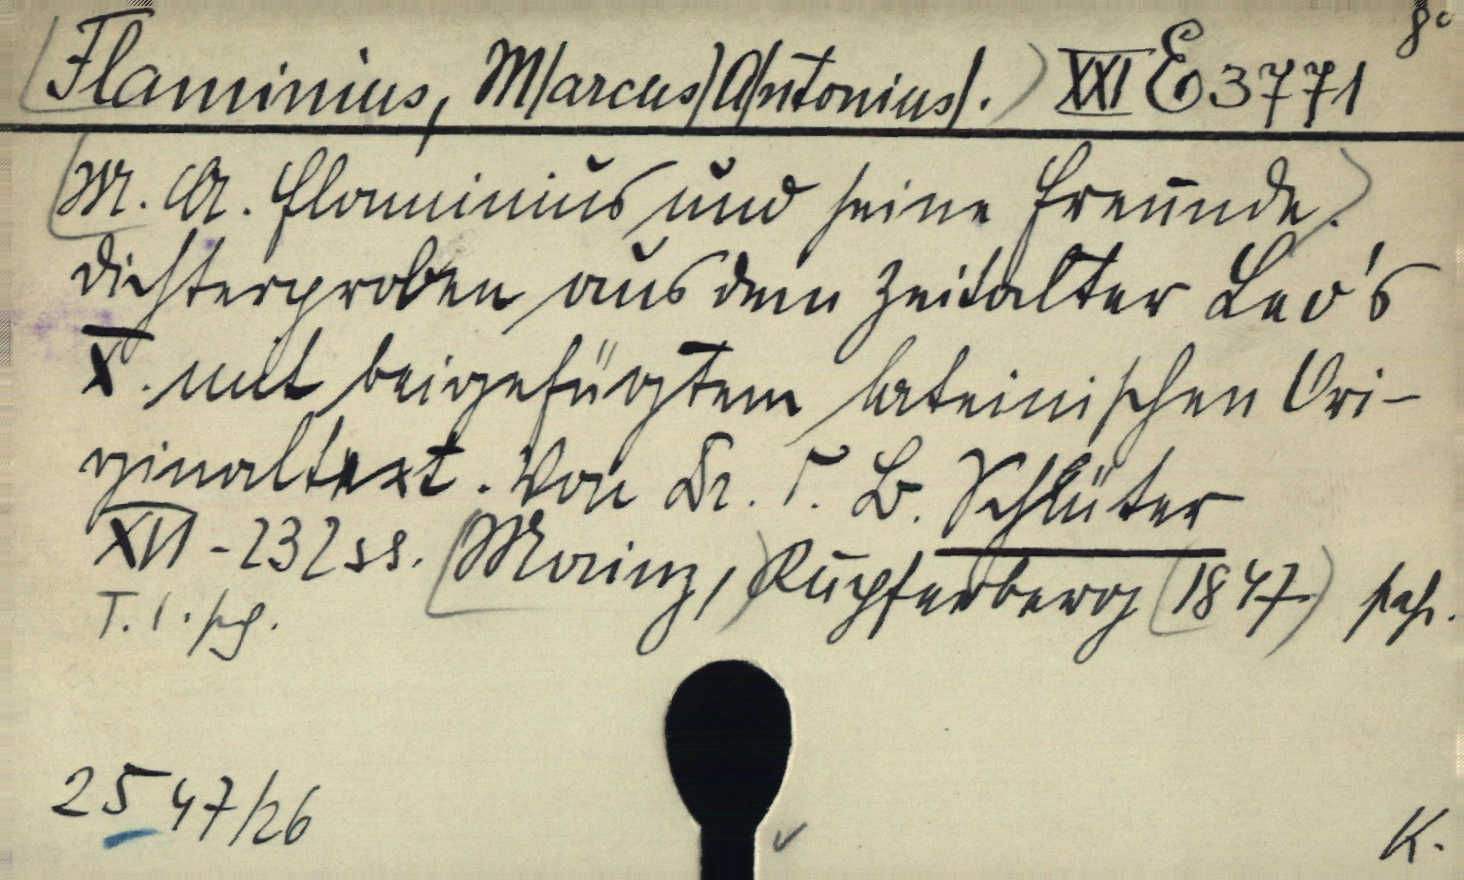 8°
Flaminius, M/arcus/ A/ntonius/. XXI E 3771
M. A. Flaminius und seine Freunde.
Dichterproben aus dem Zeitalter Leo's
X. mit beigefügtem lateinischen Ori-
ginaltext. Von Dr. C. B. Schlüter
XVI - 232 ss. (Mainz,) Kupferberg (1847)
T. 1.
2547/26
K.